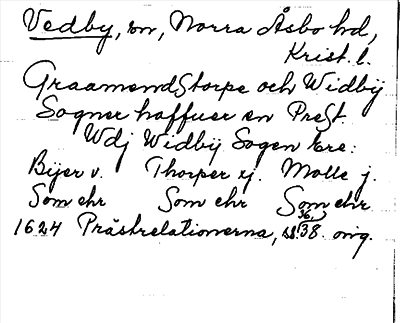 Vedby, sn, Norra Åsbo hd,
Krist. l.
Graamandstorpe och Widbÿ
Sogner haffuer en Prest.
Wdj Widbÿ Sogen ere:
Bÿer v. Thorper ij. Mølle j.
Som ehr Som ehr Som ehr
1624 Prästrelationerna, ss. 36, 38. orig.